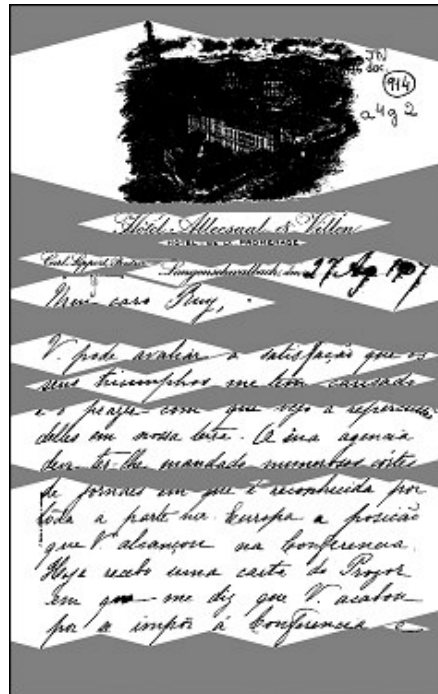 914
a4g2
Hôtel Alleesaal & Villen
HOTEL DE LA PROMENADE
Langenschwalbach, den 27 Ag 1907
Meu caro Ruy,
V. pode avaliar a satisfação que os
seus triumphos me tem causado
e o prazer com que vejo a repercussão
delles em nossa terra. A sua agencia
deve ter-lhe mandado numerosos córtes
de jornaes em que é reconhecida por
toda a parte na Europa a posição
que V. alcançou na Conferencia.
Hoje recebo uma carta do
em que me diz que V. acabou
por se impôr á Conferencia e